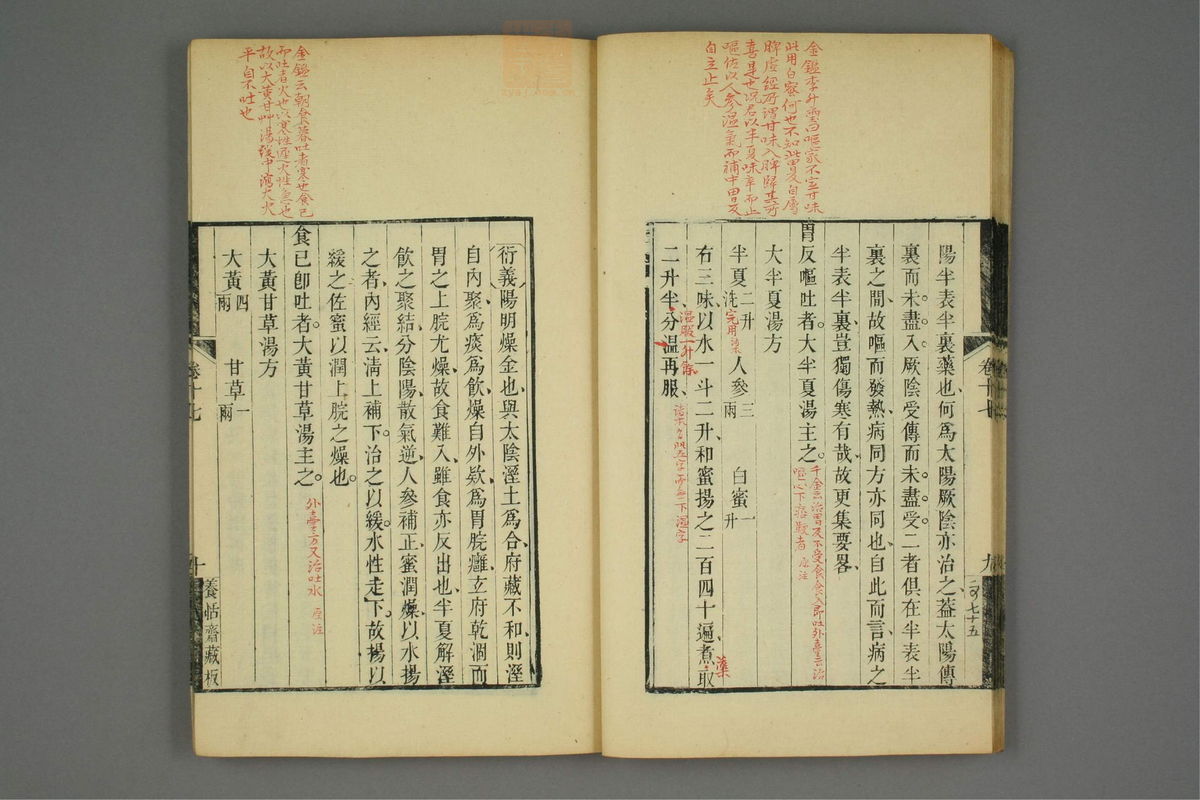 金鑑李升璽曰嘔家不宜甘味
此用白蜜何也不知此胃反自屬
脾虛經所謂甘味入脾歸其所
喜是也況君以半夏味辛而止
嘔佐以人參溫氣而補中胃反
自立止矣
陽半表半裏藥也何爲太陽厥陰亦治之蓋太陽傳
裏而未盡入厥陰受傳而未盡受二者俱在半表半
裏之間故嘔而發熱病同方亦同也自此而言病之
半表半裏豈獨傷寒有哉故更集要畧
胃反嘔吐者大半夏湯主之
千金云治胃反不受食食入即吐外臺云治
嘔心下痞鞕者 原注
大半夏湯方
半夏二升洗完用 人參三兩 白蜜一升
右三味以水一斗二升和蜜揚之二百四十遍煮取
藥
二升半分溫再服
溫服一升餘
卷十七
九
二百七十五
衍義陽明燥金也與太陰溼土爲合府藏不和則溼
自內聚爲痰爲飲燥自外欵爲胃脘癰玄府乾涸而
胃之上脘尤燥故食難入雖食亦反出也半夏解溼
飲之聚結分陰陽散氣逆人參補正蜜潤燥以水揚
之者內經云淸上補下治之以緩水性走下故揚以
緩之佐蜜以潤上脘之燥也
食已卽吐者大黃甘草湯主之
外臺方又治吐水 原注
大黃甘草湯方
大黃四兩 甘草一兩
金鑑云朝食暮吐者寒也食已
而吐者火也以寒性遲火性急也
故以大黃甘艸湯緩中瀉大火
平自不吐也
卷十七
十
養恬齋藏板